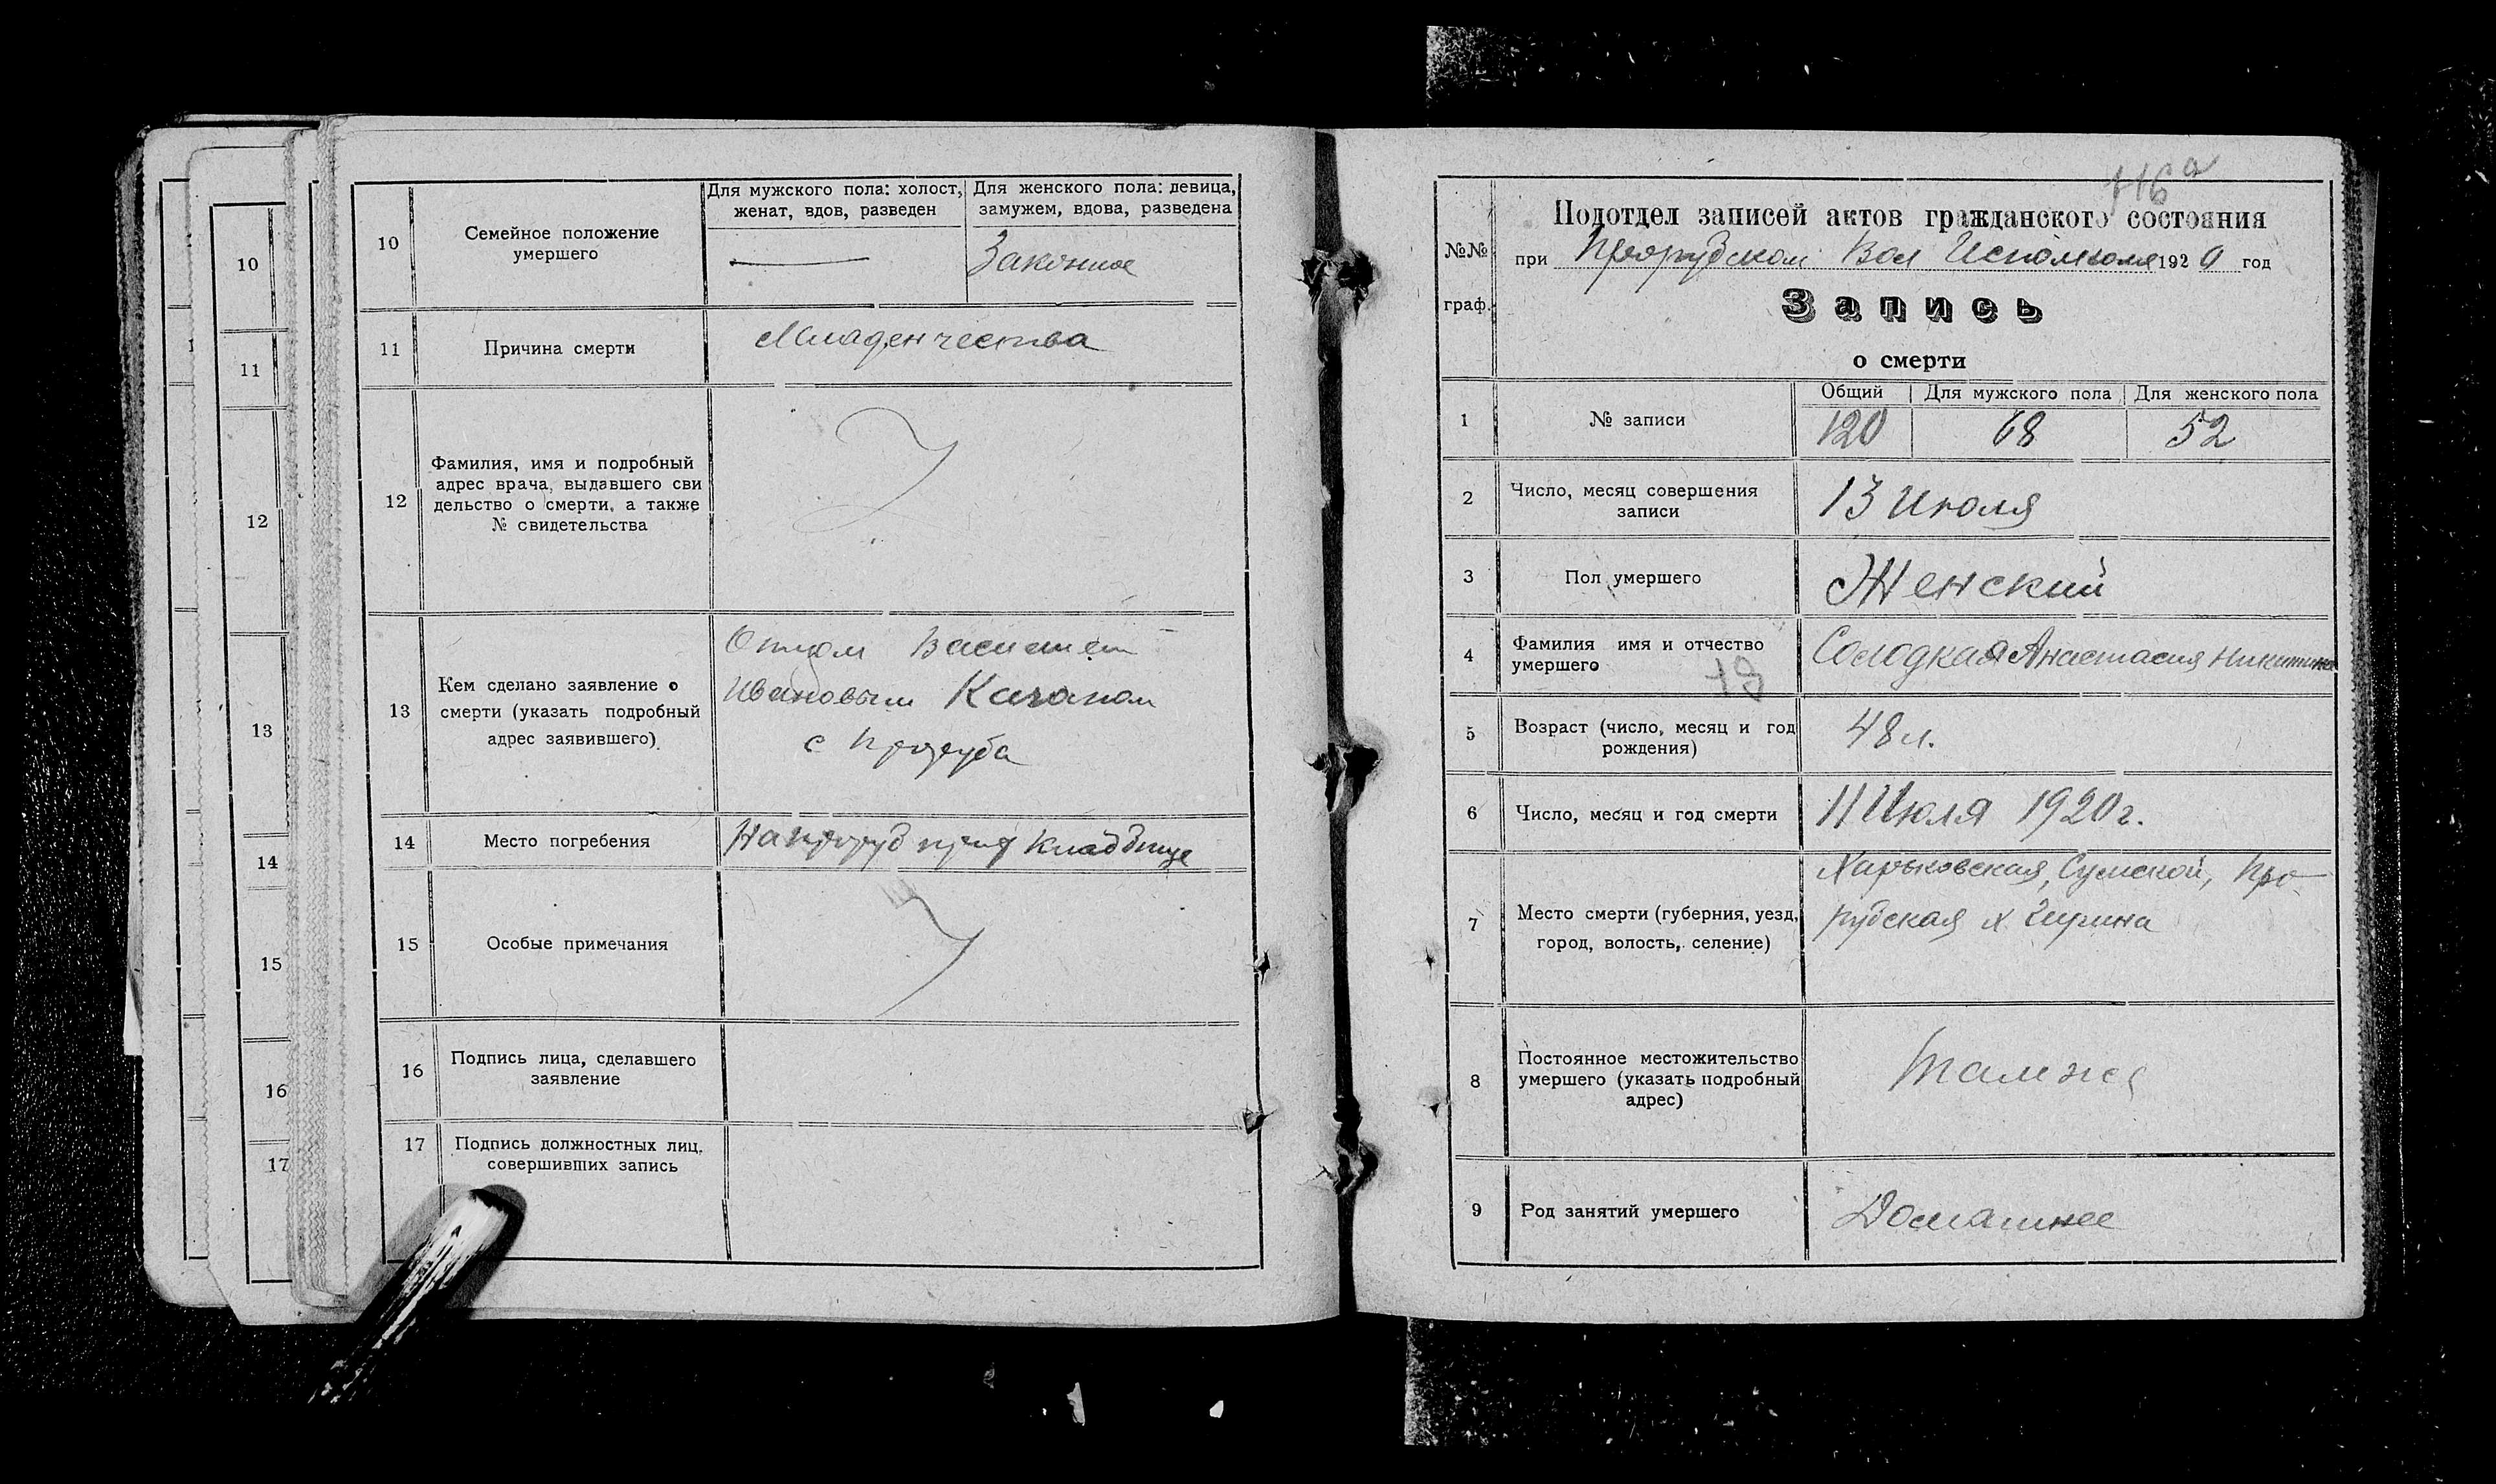 10
11
12
13
14
15
16
17
10
Семейное положение
умершего
Для мужского пола: холост,
женат, вдов, разведен
Для женского пола: девица,
замужем, вдова, разведена
Законное
11
Причина смерти
Младенчества
12
Фамилия, имя и подробный
адрес врача, выдавшего сви
дельство о смерти, а также
№ свидетельства
13
Кем сделано заявление о
смерти (указать подробный
адрес заявившего)
Отцом Василием
Ивановым
с Проруба
14
Место погребения
кладбище
15
Особые примечания
16
Подпись лица, сделавшего
заявление
17
Подпись должностных лиц,
совершивших запись
116а
№№
граф.
Подотдел записей актов гражданского состояния
при Прорубском Вол Исполкома 1920 год
Запись
о смерти
1
№ записи
Общий
Для мужского пола
Для женского пола
120
68
52
2
Число, месяц совершения
записи
13 Июля
3
Пол умершего
Женский
4
Фамилия имя и отчество
умершего
Солодкая Анастасия Никитина
5
Возраст (число, месяц и год
рождения)
48 л.
6
Число, месяц и год смерти
11 Июля 1920 г.
7
Место смерти (губерния, уезд,
город, волость, селение)
Харьковская, Сумской, Про-
рубская х.
8
Постоянное местожительство
умершего (указать подробный
адрес)
Там же
9
Род занятий умершего
Домашнее